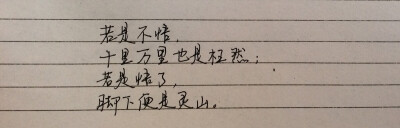 若是不悟,
千里万里也是枉然;
若是悟了,
脚下便是灵山。